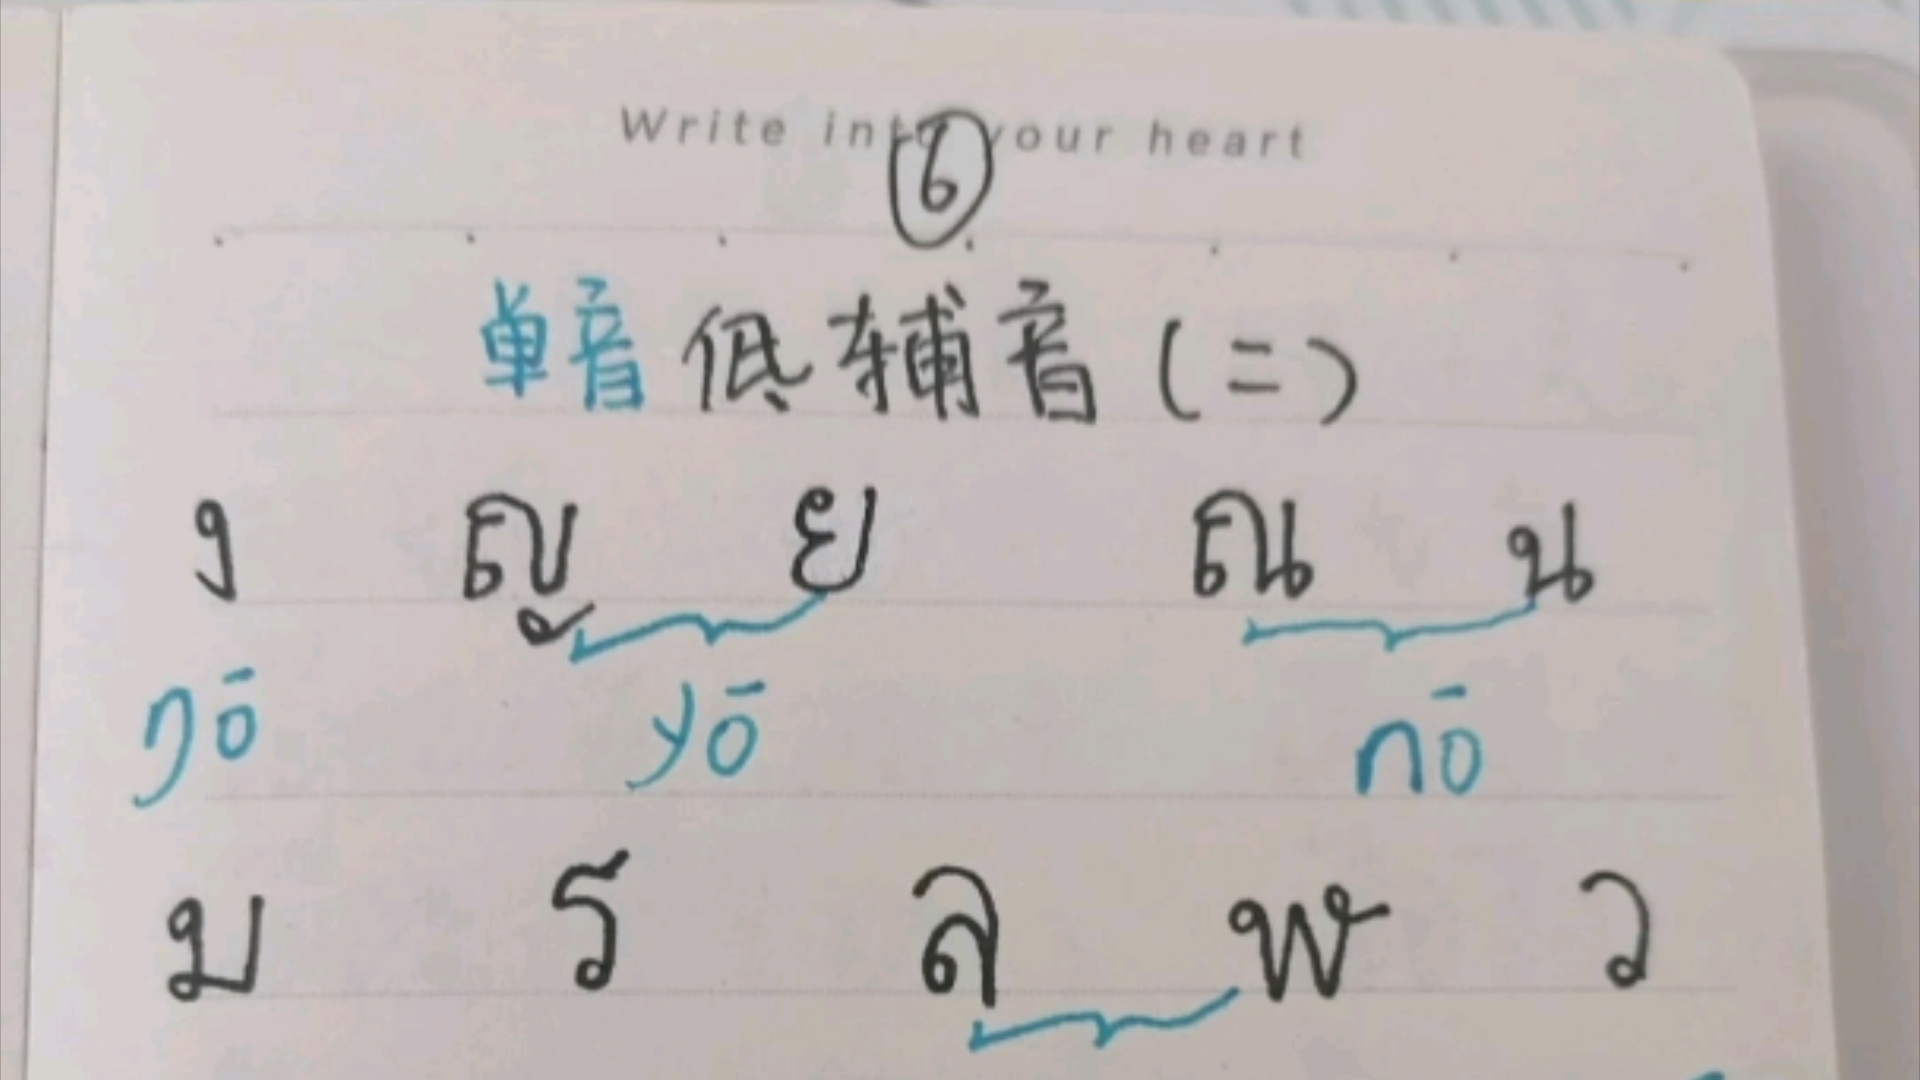 Write into your heart
⑥
单音低辅音(二)
ง ญ ย ณ น
ŋō yō nō
ม ร ล ฬ ว